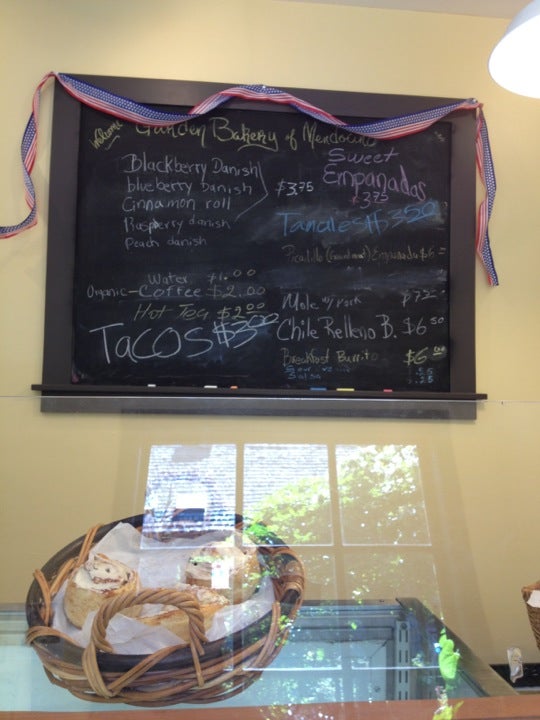 Welcome Garden Bakery of Mendocino
Blackberry Danish
blueberry Danish
Cinnamon roll
Raspberry danish
Peach danish
$3.75
Water $1.00
Organic-Coffee $2.00
Hot Tea $2.00
TACOS $3.50
Sweet
Empanadas
$3.75
Tamales $3.50
Picadillo Empanada $6
Mole w/ Pork $7
Chile Relleno B. $6.50
Breakfast Burrito $6.00
Sour
Salsa .25